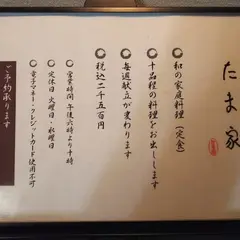 たま家
和の家庭料理(定食)
十品程の料理をお出しします
毎週献立が変わります
税込二千五百円
営業時間 午後六時より十時
定休日 火曜日・水曜日
電子マネー・クレジットカード使用不可
ご予約承ります